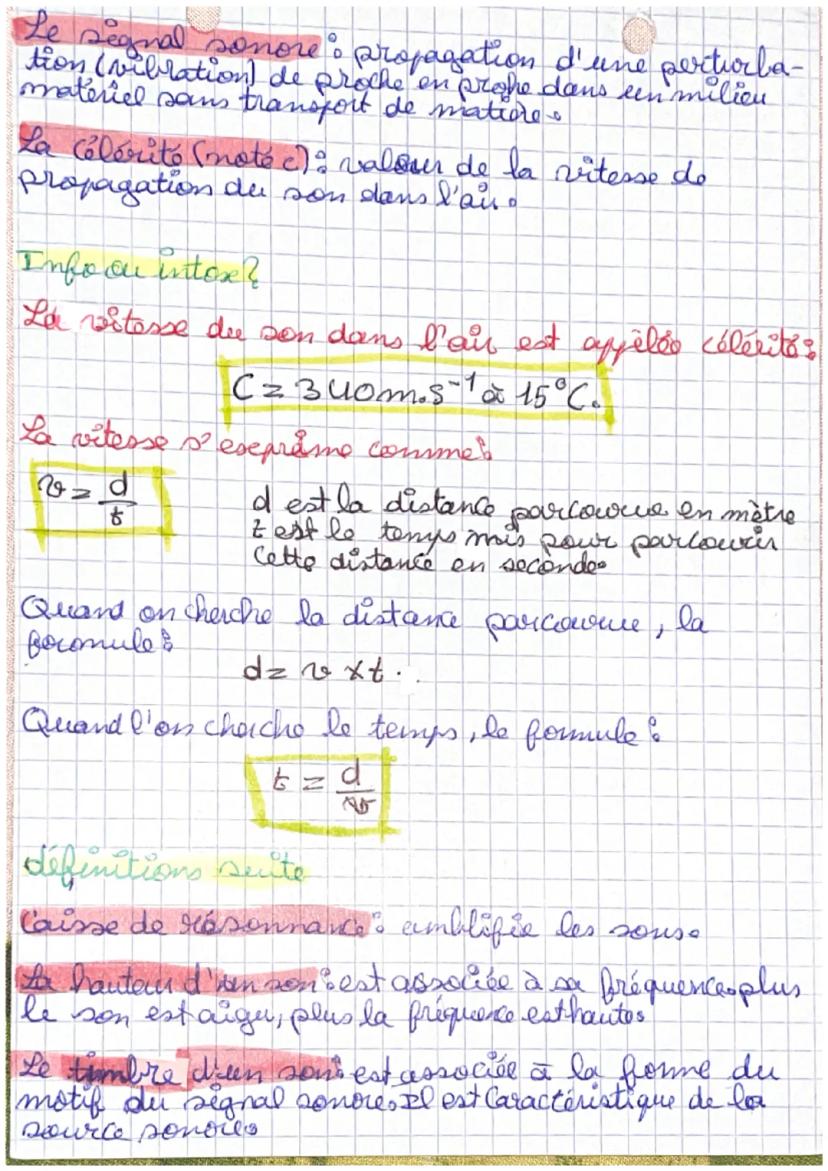 Le signal sonore : propagation d'une perturba-
tion (vibration) de proche en prohe dans un milieu
matériel sans transport de matière.
La célérité (noté c) : valeur de la vitesse de
propagation du son dans l'air.
Info ou intox ?
La vitesse du son dans l'air est appelée célérité :
C = 340 m.s⁻¹ à 15°C.
La vitesse s'exprime comme :
v = d/t
d est la distance parcourue en mètre
t est le temps mis pour parcourir
cette distance en seconde.
Quand on cherche la distance parcourue, la
formule :
d = v x t.
Quand l'on cherche le temps, le formule :
t = d/v
définitions suite
Caisse de résonnance : amblifie les sons.
La hauteur d'un son : est associée à sa fréquence. plus
le son est aigu, plus la fréquence est haute.
Le timbre d'un son : est associée à la forme du
motif du signal sonore. Il est caractéristique de la
source sonore.